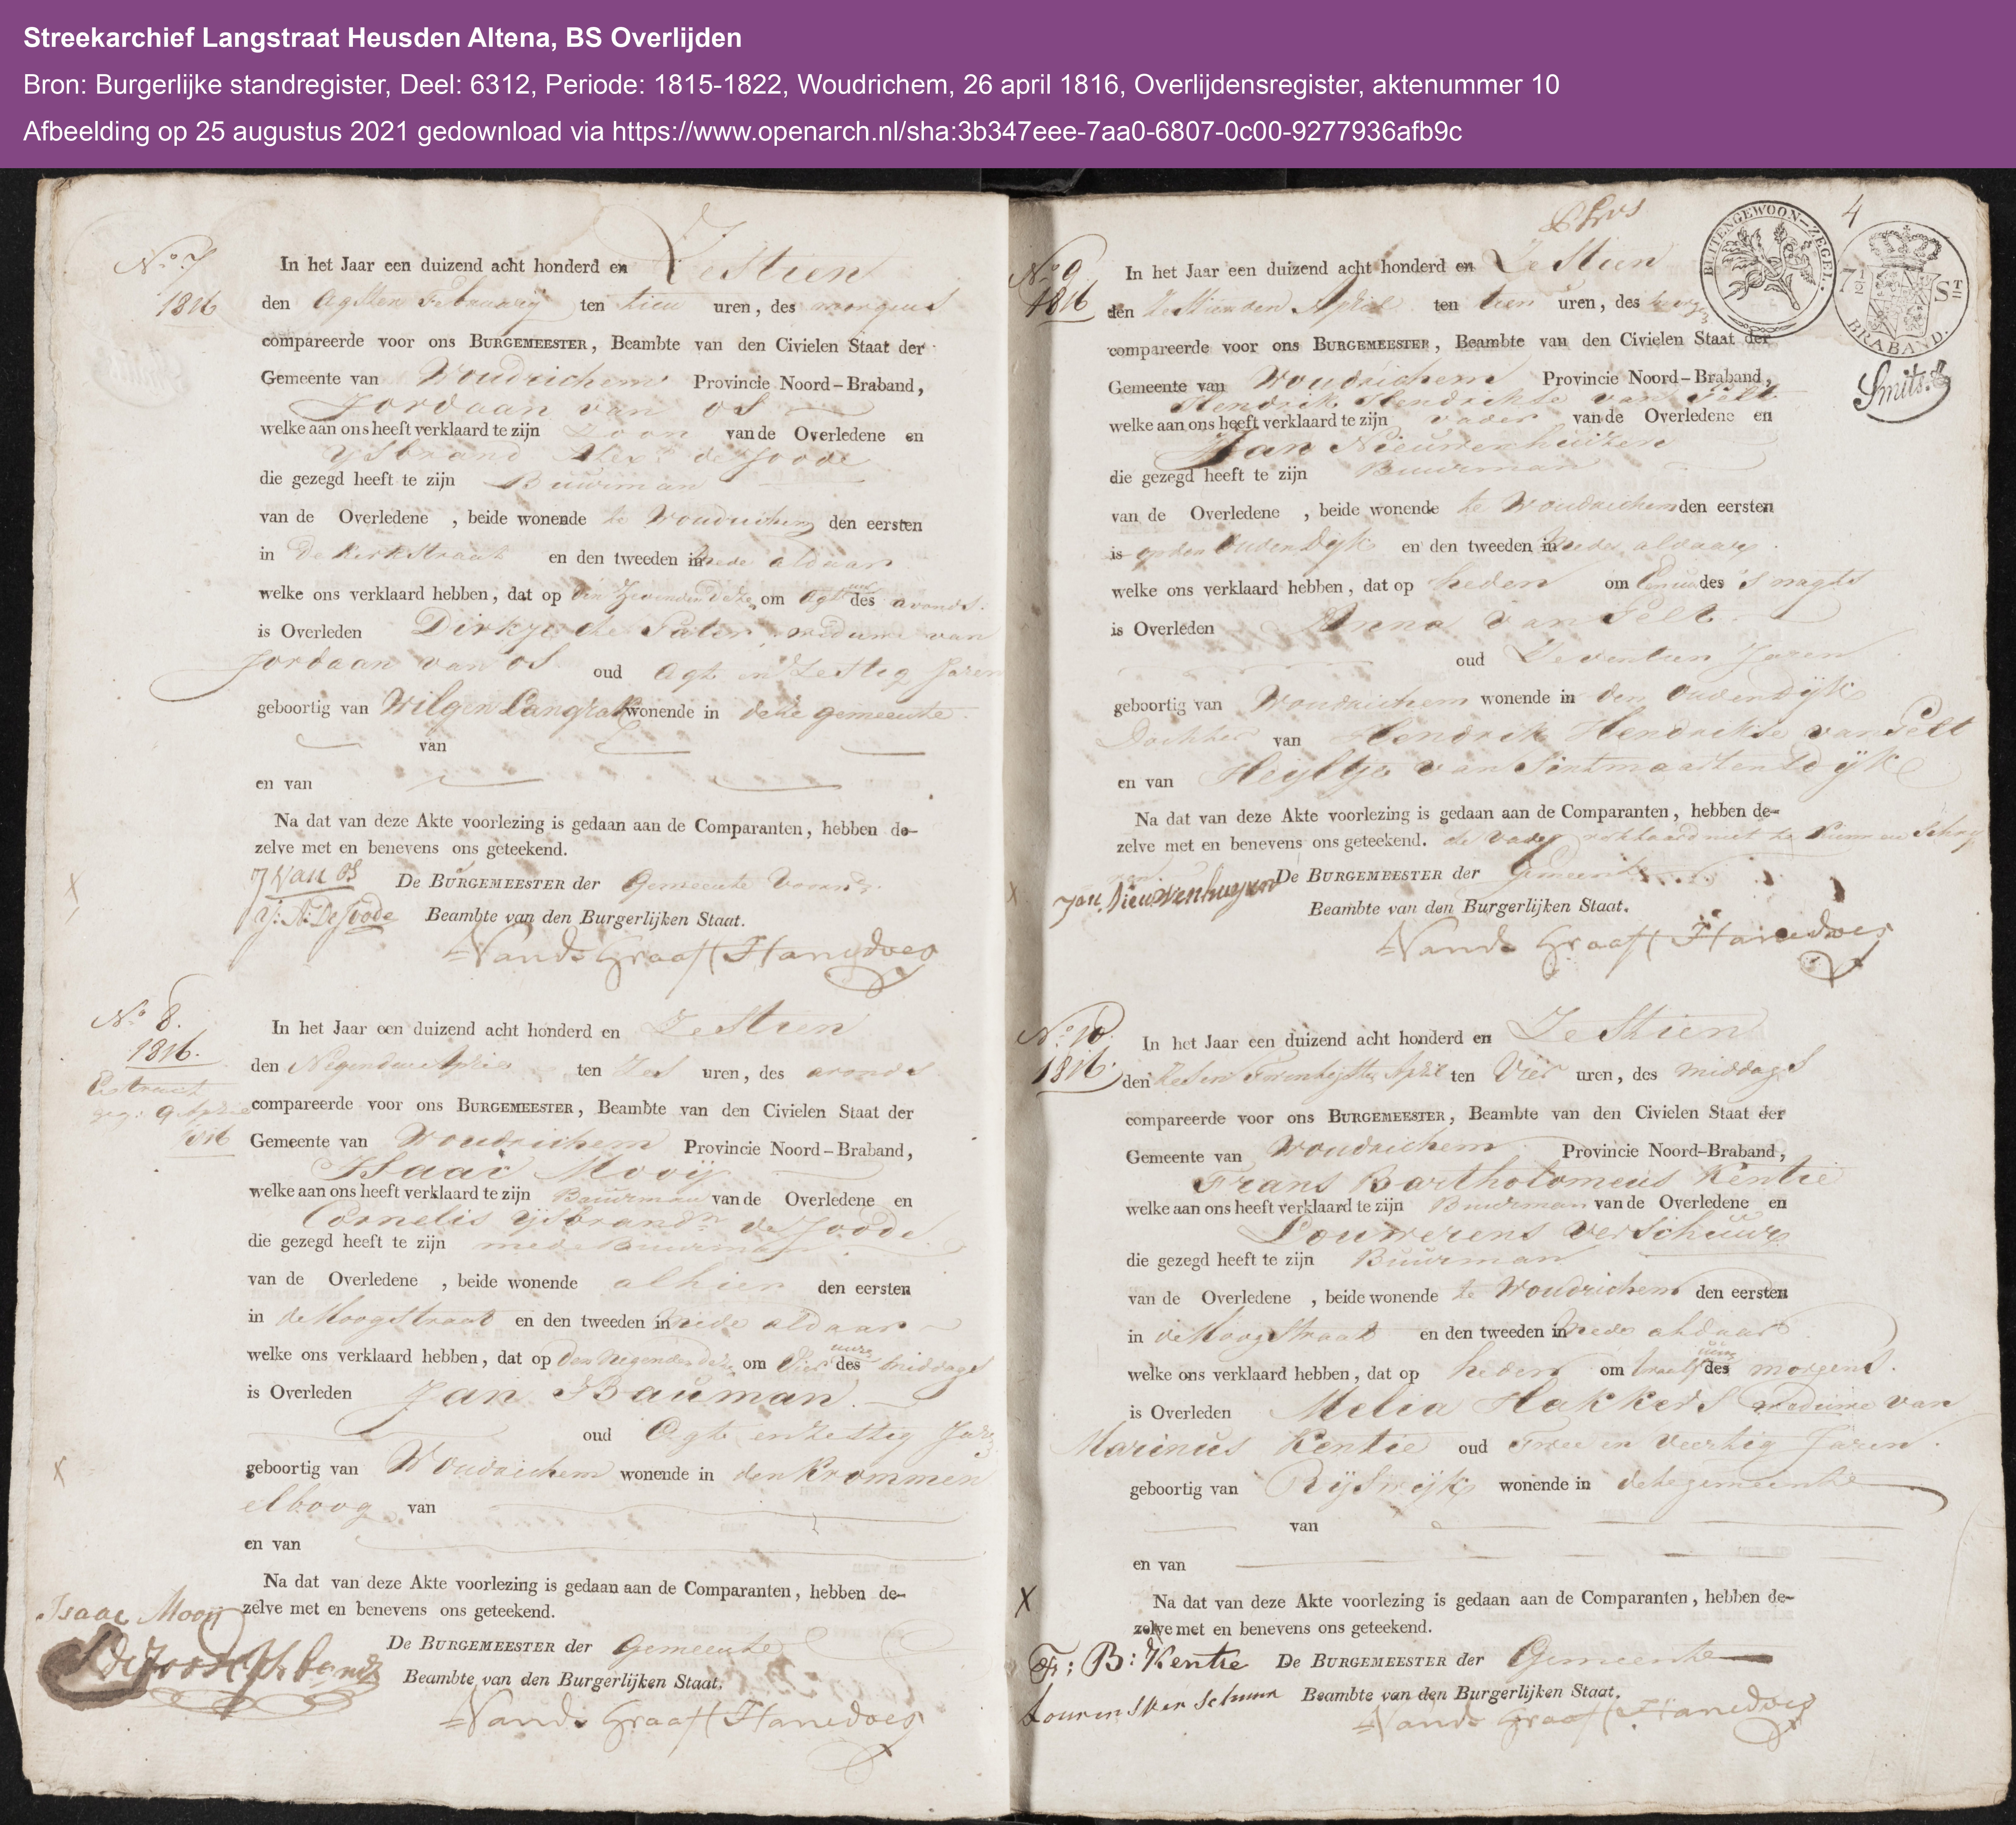 Streekarchief Langstraat Heusden Altena, BS Overlijden
Bron: Burgerlijke standregister, Deel: 6312, Periode: 1815-1822, Woudrichem, 26 april 1816, Overlijdensregister, aktenummer 10
Afbeelding op 25 augustus 2021 gedownload via https://www.openarch.nl/sha:3b347eee-7aa0-6807-0c00-9277936afb9c
No. 7
1816
In het Jaar een duizend acht honderd en Zestien
den Agtsten Februarij ten tien uren, des morgens
compareerde voor ons BURGEMEESTER, Beambte van den Civielen Staat der
Gemeente van Woudrichem Provincie Noord-Braband,
Jordaan van Os
welke aan ons heeft verklaard te zijn Zoon van de Overledene en
Ysbrand de Joode
die gezegd heeft te zijn Buurman
van de Overledene , beide wonende te Woudrichem den eersten
in de Kerkstraat en den tweeden in mede aldaar
welke ons verklaard hebben, dat op den Zevenden deze om agt uur des avonds.
is Overleden Dirkje de Pater, weduwe van
Jordaan van Os oud Agt en Zestig Jaren
geboortig van Wilgen Langrak wonende in deze gemeente
van
en van
Na dat van deze Akte voorlezing is gedaan aan de Comparanten, hebben de-
zelve met en benevens ons geteekend.
J van Os De BURGEMEESTER der Gemeente voornd.
Y: A: De Joode Beambte van den Burgerlijken Staat.
Vande Graaff Hanedoes
No. 8.
1816.
Extract
geg: 9 April
1816
In het Jaar een duizend acht honderd en Zestien
den Negenden April ten Zes uren, des avonds
compareerde voor ons BURGEMEESTER, Beambte van den Civielen Staat der
Gemeente van Woudrichem Provincie Noord-Braband,
Isaac Mooij
welke aan ons heeft verklaard te zijn Buurman van de Overledene en
Cornelis Ysbrandsz de Joode
die gezegd heeft te zijn mede Buurman
van de Overledene , beide wonende alhier den eersten
in de Hoogstraat en den tweeden in mede aldaar
welke ons verklaard hebben, dat op den negenden deze om Vier uure des middags
is Overleden Jan Bauman.
oud Agt en Zestig Jaren
geboortig van Woudrichem wonende in den Krommen
elboog van
en van
Na dat van deze Akte voorlezing is gedaan aan de Comparanten, hebben de-
zelve met en benevens ons geteekend.
Isaac Mooij
De BURGEMEESTER der Gemeente
Beambte van den Burgerlijken Staat.
Vande Graaff Hanedoes
4
BUITENGEWOON-ZEGEL.
7 1/2 ST
BRABAND.
Smits.
No. 9
1816
In het Jaar een duizend acht honderd en Zestien
den Zestienden April ten tien uren, des morgens
compareerde voor ons BURGEMEESTER, Beambte van den Civielen Staat der
Gemeente van Woudrichem Provincie Noord-Braband,
Hendrik Hendrikse van Pelt
welke aan ons heeft verklaard te zijn vader van de Overledene en
Jan Nieuwenhuizen
die gezegd heeft te zijn Buurman
van de Overledene , beide wonende te Woudrichem den eersten
is op den Ouden Dyk en den tweeden in mede aldaar
welke ons verklaard hebben, dat op heden om des 's nagts
is Overleden Anna van Pelt
oud Zeventien Jaren
geboortig van Woudrichem wonende in den Oudendijk
Dochter van Hendrik Hendrikse van Pelt
en van Heyltje van Sintmaartensdijk
Na dat van deze Akte voorlezing is gedaan aan de Comparanten, hebben de-
zelve met en benevens ons geteekend. de vader verklaard niet te kunnen Schry
Jan Nieuwenhuyzen De BURGEMEESTER der Gemeente
Beambte van den Burgerlijken Staat.
Vande Graaff Hanedoes
No. 10.
1816.
In het Jaar een duizend acht honderd en Zestien
den Zes en Twentigsten April ten Vier uren, des middags
compareerde voor ons BURGEMEESTER, Beambte van den Civielen Staat der
Gemeente van Woudrichem Provincie Noord-Braband,
Frans Bartholomeus Kentie
welke aan ons heeft verklaard te zijn Buurman van de Overledene en
Louwerens Verschuur
die gezegd heeft te zijn Buurman
van de Overledene , beide wonende te Woudrichem den eersten
in de Hoogstraat en den tweeden in mede aldaar
welke ons verklaard hebben, dat op heden om twaalf uure des morgens.
is Overleden Melia Hakkers weduwe van
Marinus Kentie oud twee en veertig Jaren.
geboortig van Rijswijk wonende in deze gemeente
van
en van
Na dat van deze Akte voorlezing is gedaan aan de Comparanten, hebben de-
zelve met en benevens ons geteekend.
F: B: Kentie De BURGEMEESTER der Gemeente
Lourens Verschuur Beambte van den Burgerlijken Staat.
Vande Graaff Hanedoes